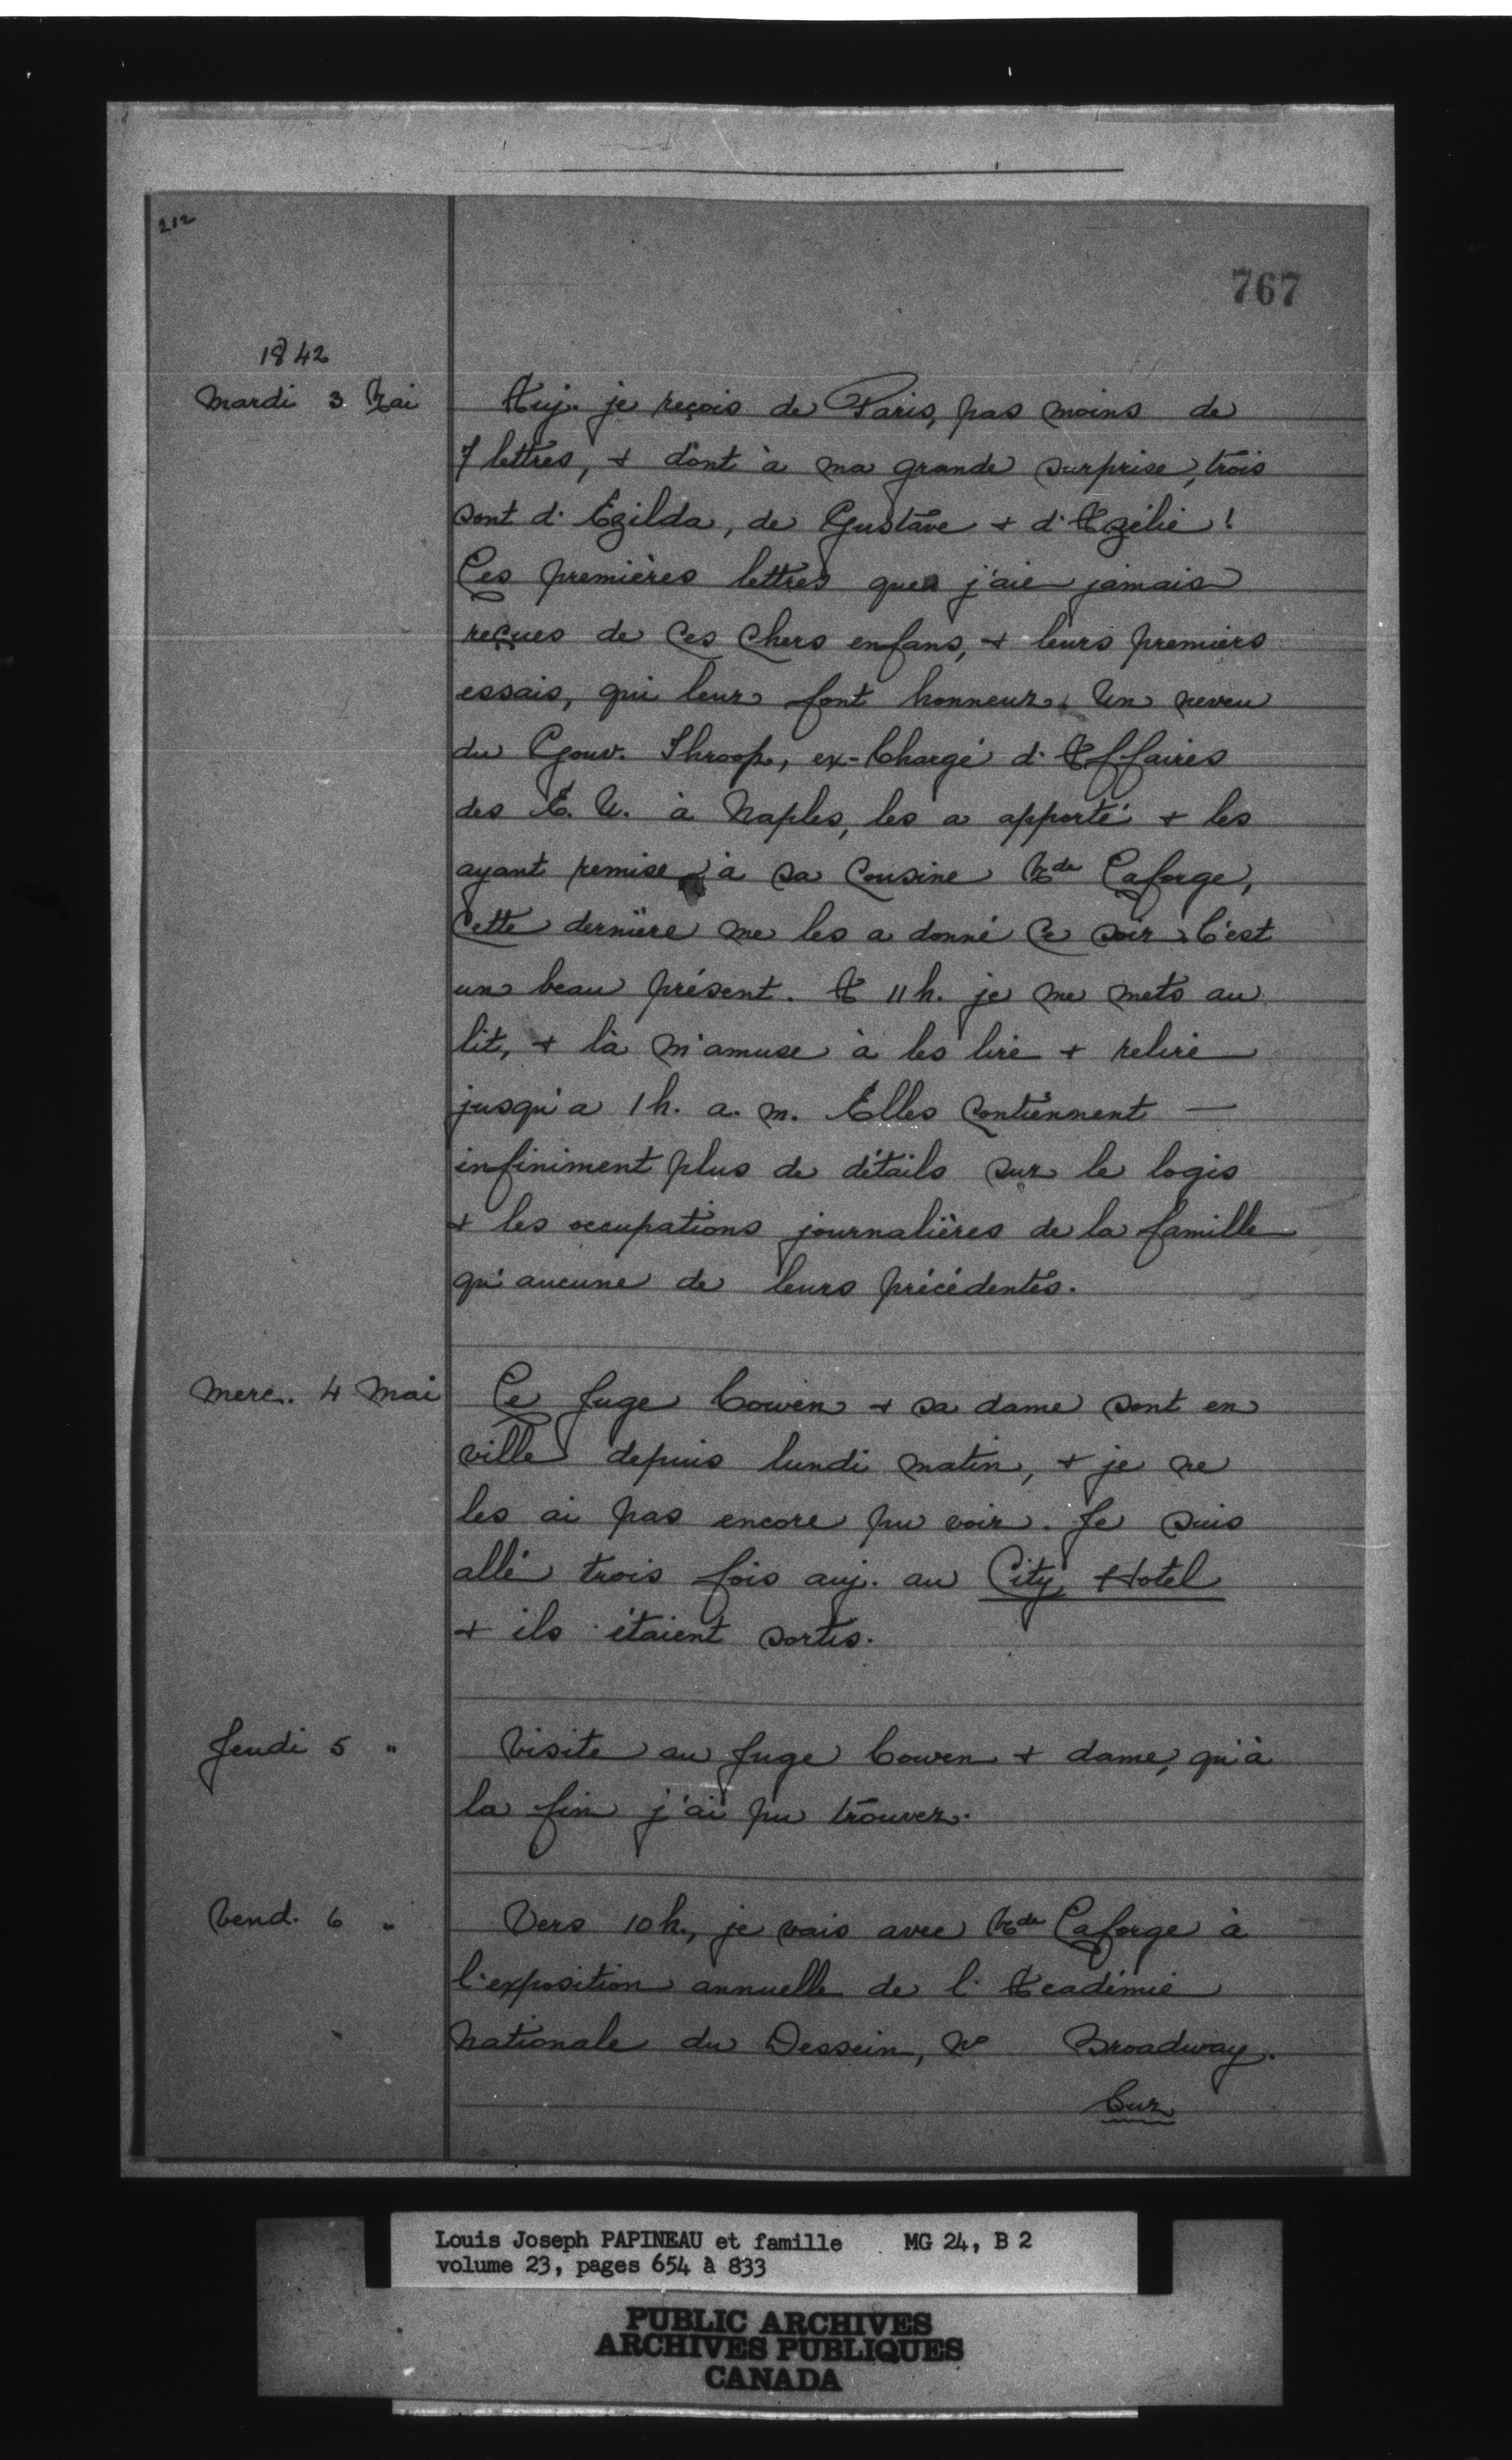 212
767
1842
Mardi 3 Mai
Auj. je reçois de Paris, pas moins de
7 lettres, + dont à ma grande surprise, trois
sont d'Ezilda, de Gustave + d'Azélie!
Les premières lettres que j'aie jamais
reçues de ces chers enfans, + leurs premiers
essais, qui leur font honneur. Un neveu
du Gouv. Throop, ex-Chargé d'Affaires
des E. U. à Naples, les a apporté + les
ayant remise à sa cousine Mde Laforge,
cette dernière me les a donné ce soir. C'est
un beau présent. A 11 h. je me mets au
lit, + là m'amuse à les lire + relire
jusqu'a 1 h. a. m. Elles contiennent —
infiniment plus de détails sur le logis
+ les occupations journalières de la famille
qu'aucune de leurs précédentes.
Merc. 4 Mai
Le Juge Cowen + sa dame sont en
ville depuis lundi matin, + je ne
les ai pas encore pu voir. Je suis
allé trois fois auj. au City Hotel
+ ils étaient sortis.
Jeudi 5 "
Visite au Juge Cowen + dame, qu'à
la fin j'ai pu trouver.
Vend. 6 "
Vers 10 h., je vais avec Mde Laforge à
l'exposition annuelle de l'Académie
Nationale du Dessein, No Broadway.
Cur
Louis Joseph PAPINEAU et famille MG 24, B 2
volume 23, pages 654 à 833
PUBLIC ARCHIVES
ARCHIVES PUBLIQUES
CANADA